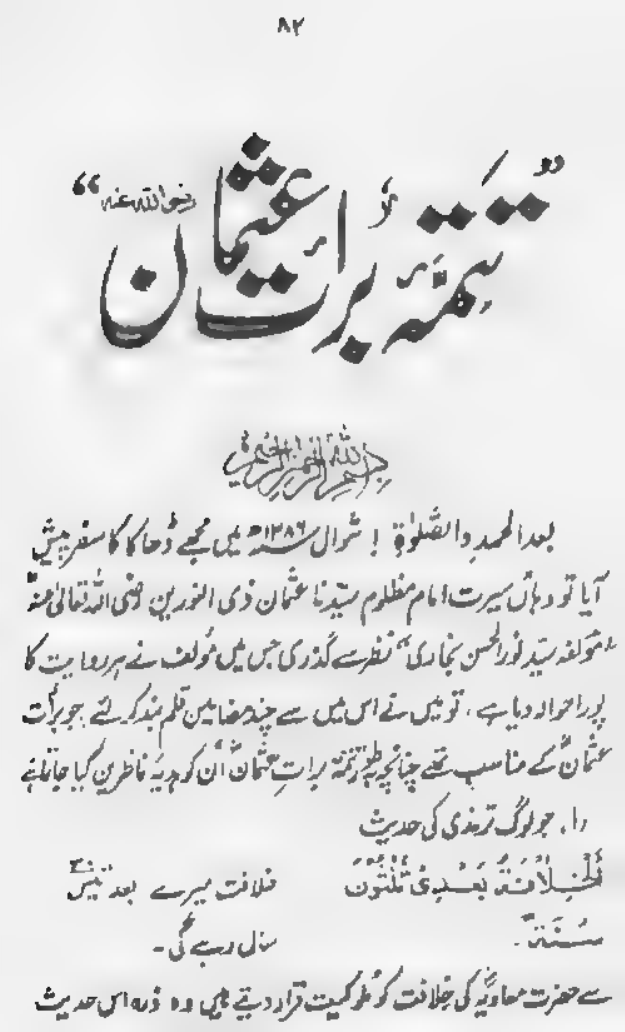 ۸۲
”تتمۂ برأتِ عثمان رضی اللہ عنہ“
بسم اللہ الرحمن الرحیم
بعد الحمد والصَّلوٰۃ ! شوال ۱۳۸۶ھ میں مجھے ڈھاکا کا سفر پیش
آیا تو وہاں سیرت امام مظلوم سیّدنا عثمان ذی النورین رضی اللہ تعالیٰ عنہ
مؤلفہ سیّد نور الحسن بخاری“ نظر سے گذری جس میں مؤلف نے ہر روایت کا
پورا حوالہ دیا ہے، تو میں نے اس میں سے چند مضامین قلم بند کر لئے جو برأت
عثمانؓ کے مناسب تھے چنانچہ بطور تتمۂ برأتِ عثمانؓ ان کو ہدیۂ ناظرین کیا جاتا ہے
(۱) جو لوگ ترمذی کی حدیث
اَلْخِلَافَۃُ بَعْدِیْ ثَلٰثُوْنَ خلافت میرے بعد تیس
سَنَۃً۔ سال رہے گی۔
سے حضرت معاویہؓ کی خلافت کو ملوکیت قرار دیتے ہیں وہ ذرہ اس حدیث